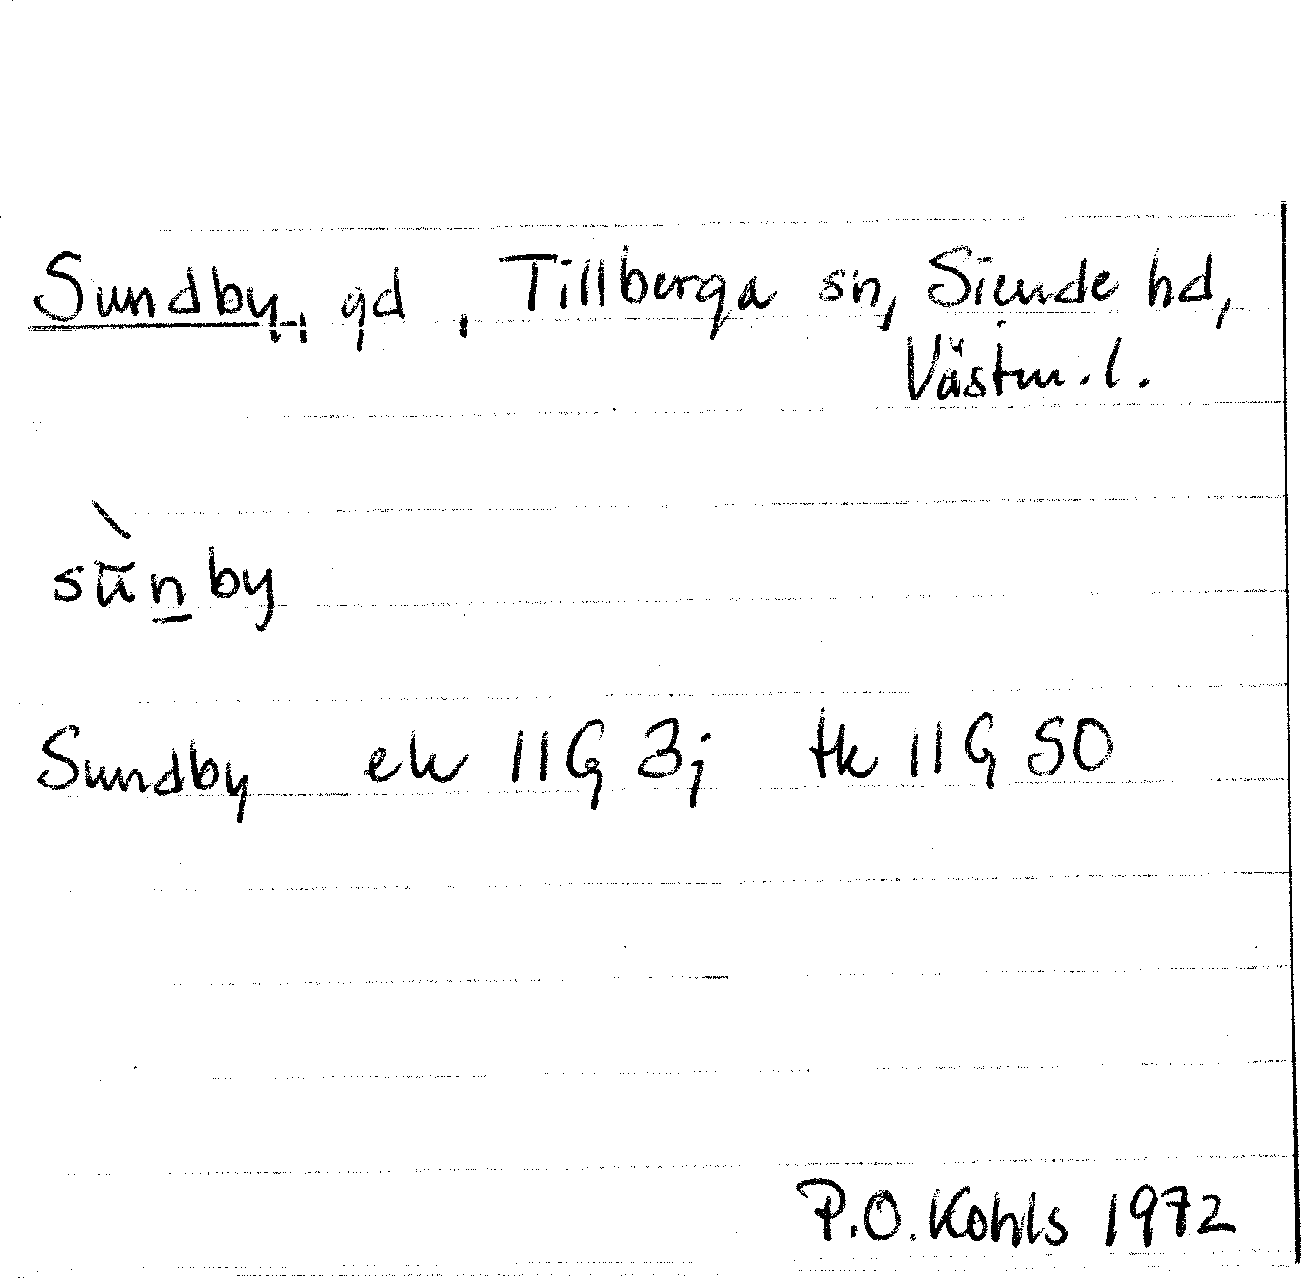 Sundby, gd, Tillberga sn, Siende hd,
Västm. l.
sùn̲by
Sundby ek 11G 3j tk 11G 50
P.O. Kohls 1972